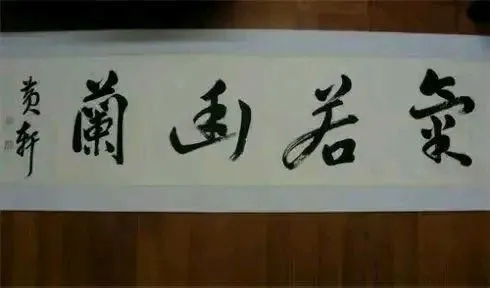 氣若幽蘭
黄轩